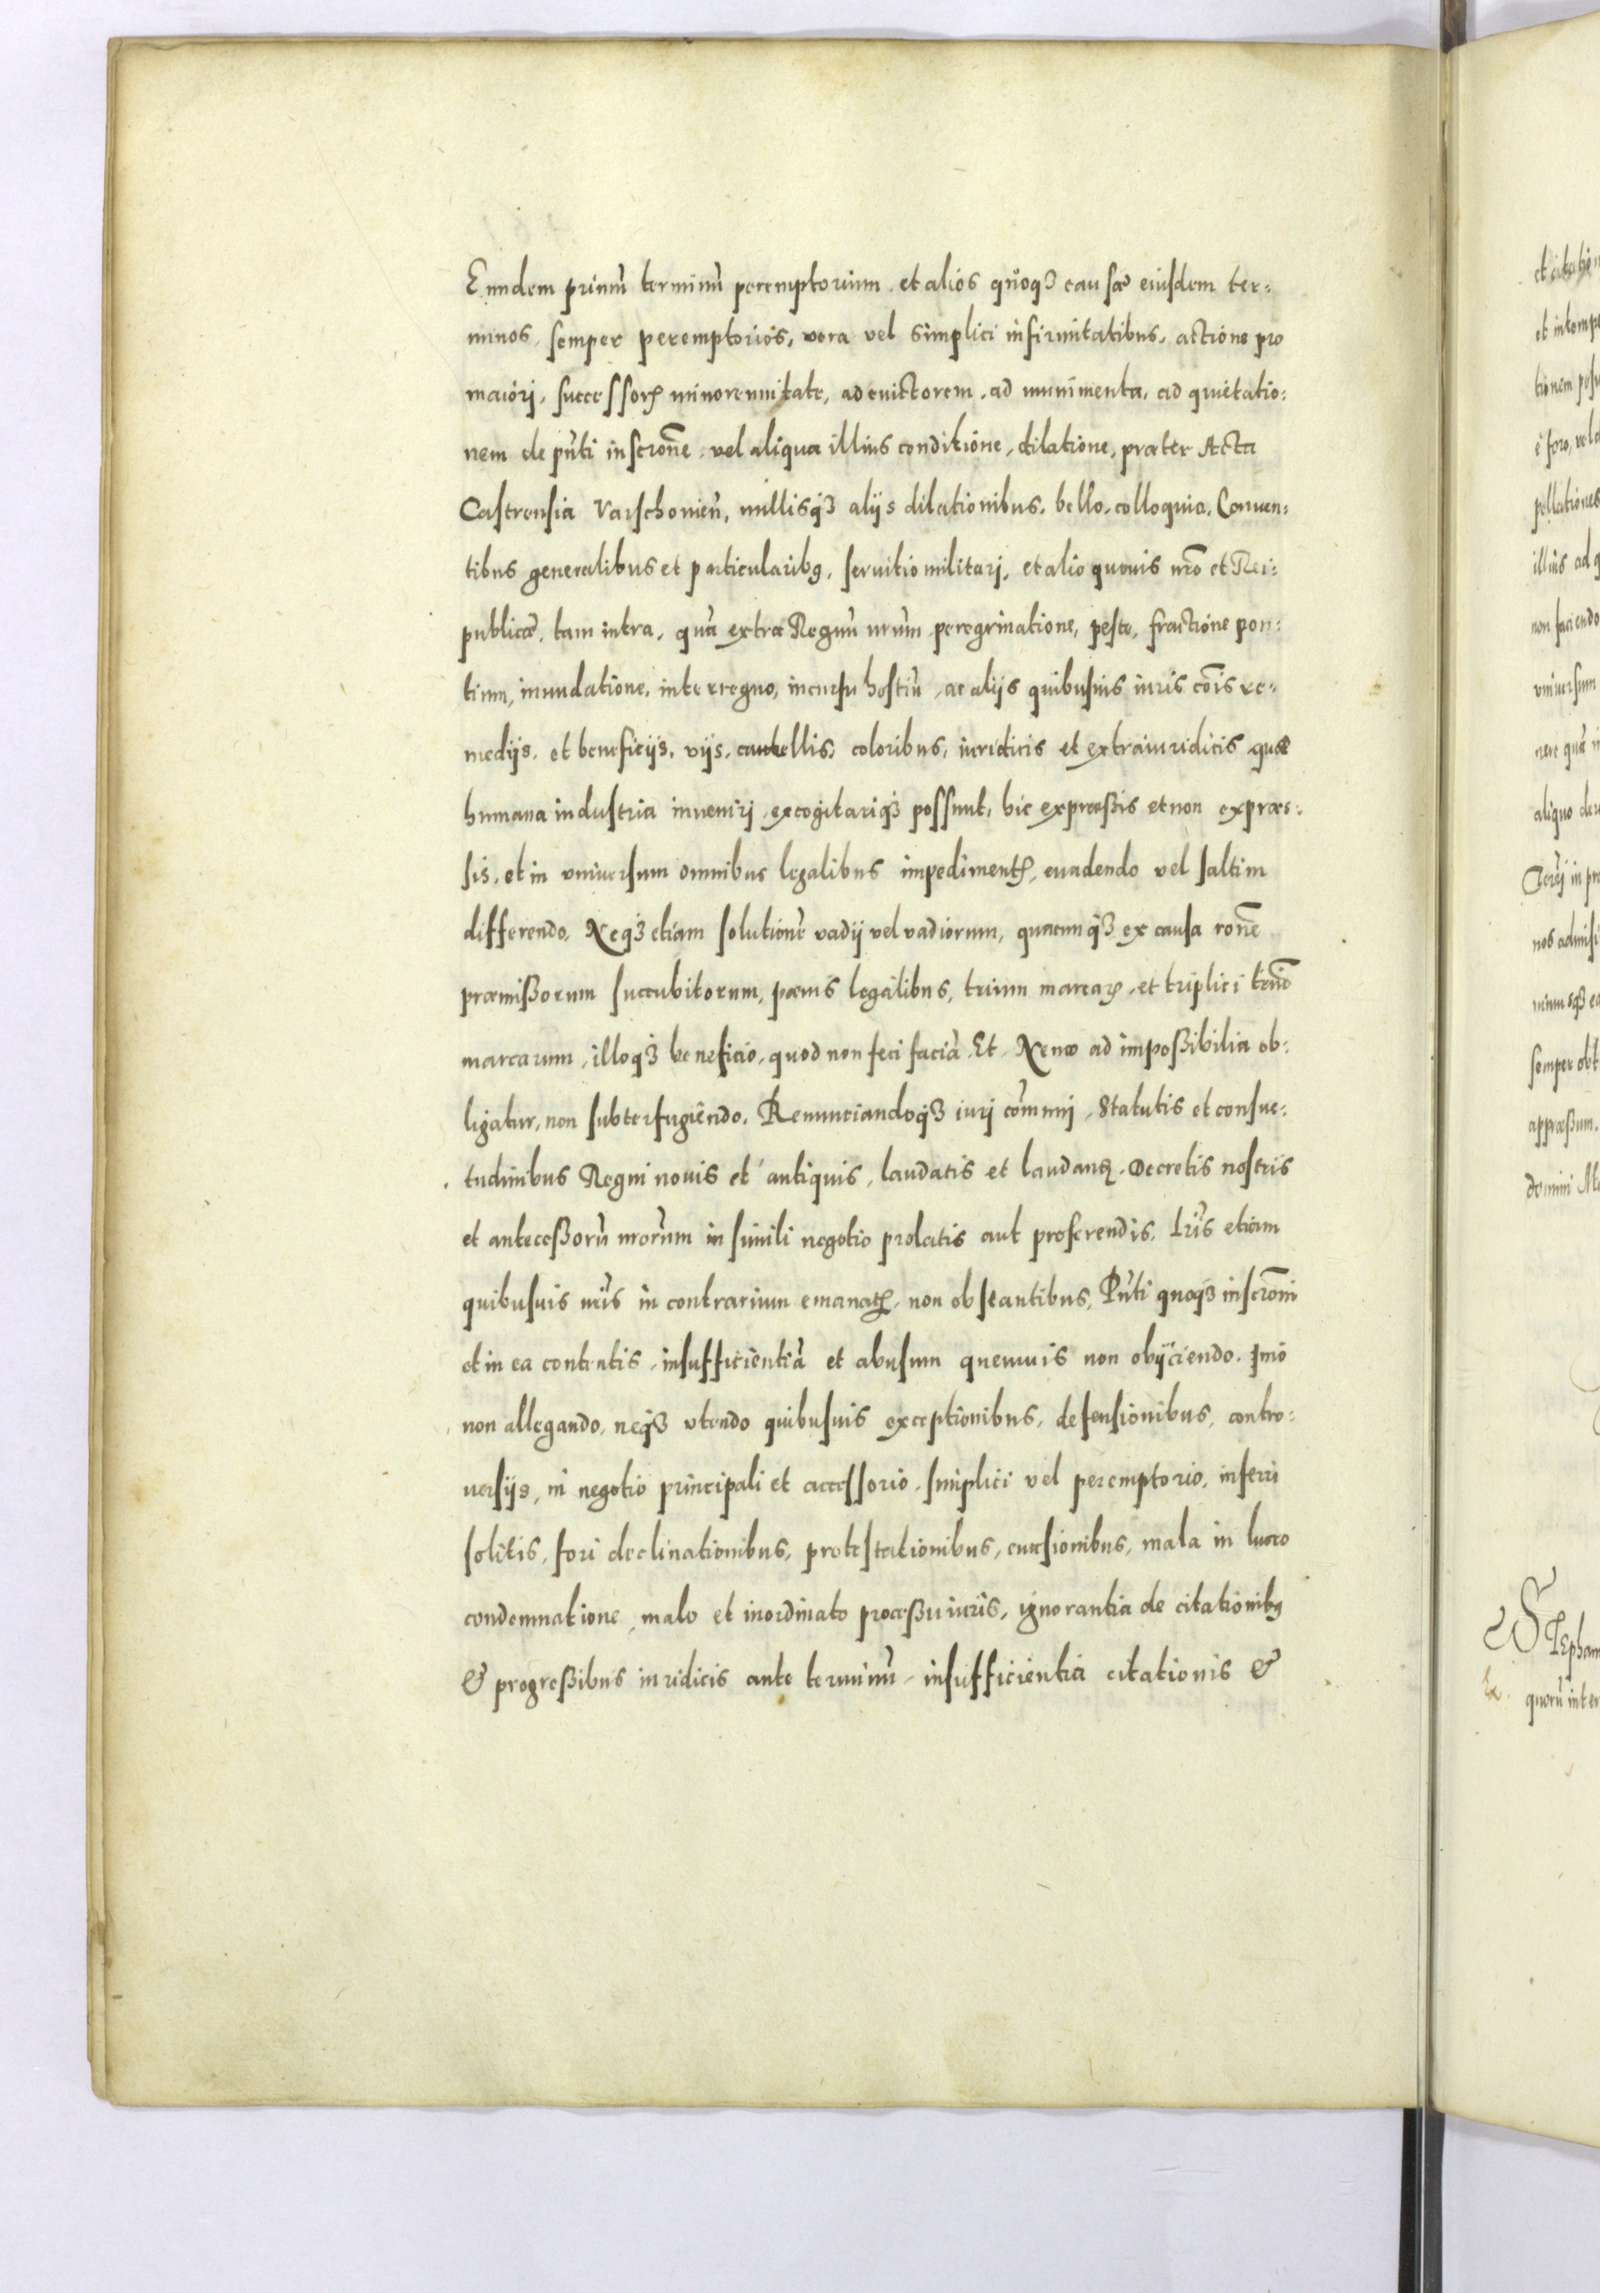 Eundem primū terminū peremptorium et alios quoqꝫ causæ eiusdem ter:
minos, semper peremptorios, vera vel simplici infirmitatibus, actione pro
maiori, successorꝝ minorennitate, ad euictorem, ad munimenta, ad quietatio:
nem de pñti inscrōne, vel aliqua illius conditione, dilatione, præter Acta
Castrensia Varschouieñ, nullisqꝫ alijs dilationibus, bello, colloquio, Conuen:
tibus generalibus et particularibꝰ, seruitio militari, et alio quouis nrō et Rei:
publicæ, tam intra, quā extra Regnū nrum peregrinatione, peste, fractione pon:
tium, inundatione, interregno, incursu hostiū, ac alijs quibusuis iuris cōis re:
medijs, et beneficijs, vijs, cautellis, coloribus, iuridicis et extraiuridicis quæ
humana industria inueniri, excogitariqꝫ possunt, hic expræßis et non expræs:
sis, et in vniuersum omnibus legalibus impedimentꝭ, euadendo vel saltim
differendo, Neqꝫ etiam solutionē vadij vel vadiorum, quacunqꝫ ex causa rōne
præmißorum succubitorum, pænis legalibus, trium marcarꝝ, et triplici tmīo
marcarum, illoqꝫ beneficio, quod non feci faciā, Et, Nemo ad impoßibilia ob:
ligatur, non subterfugiendo, Renunciandoqꝫ iuri cōmuni, Statutis et consue:
tudinibus Regni nouis et antiquis, laudatis et laudanꝭ, Decretis nostris
et anteceßorū nrorum in simili negotio prolatis aut proferendis, Lrīs etiam
quibusuis nrīs in contrarium emanatꝭ, non obstantibus, Pñti quoqꝫ inscrōni
et in ea contentis, insufficientiā et abusum quemuis non obijciendo. Imo
non allegando, neqꝫ vtendo quibusuis exceptionibus, defensionibus, contro:
uersijs, in negotio principali et accessorio, simplici vel peremptorio, inferri
solitis, fori declinationibus, protestationibus, euasionibus, mala in lucro
condemnatione, malo et inordinato proceßu iuris, ignorantia de citationibꝰ
& progreßibus iuridicis ante terminū, insufficientia citationis &